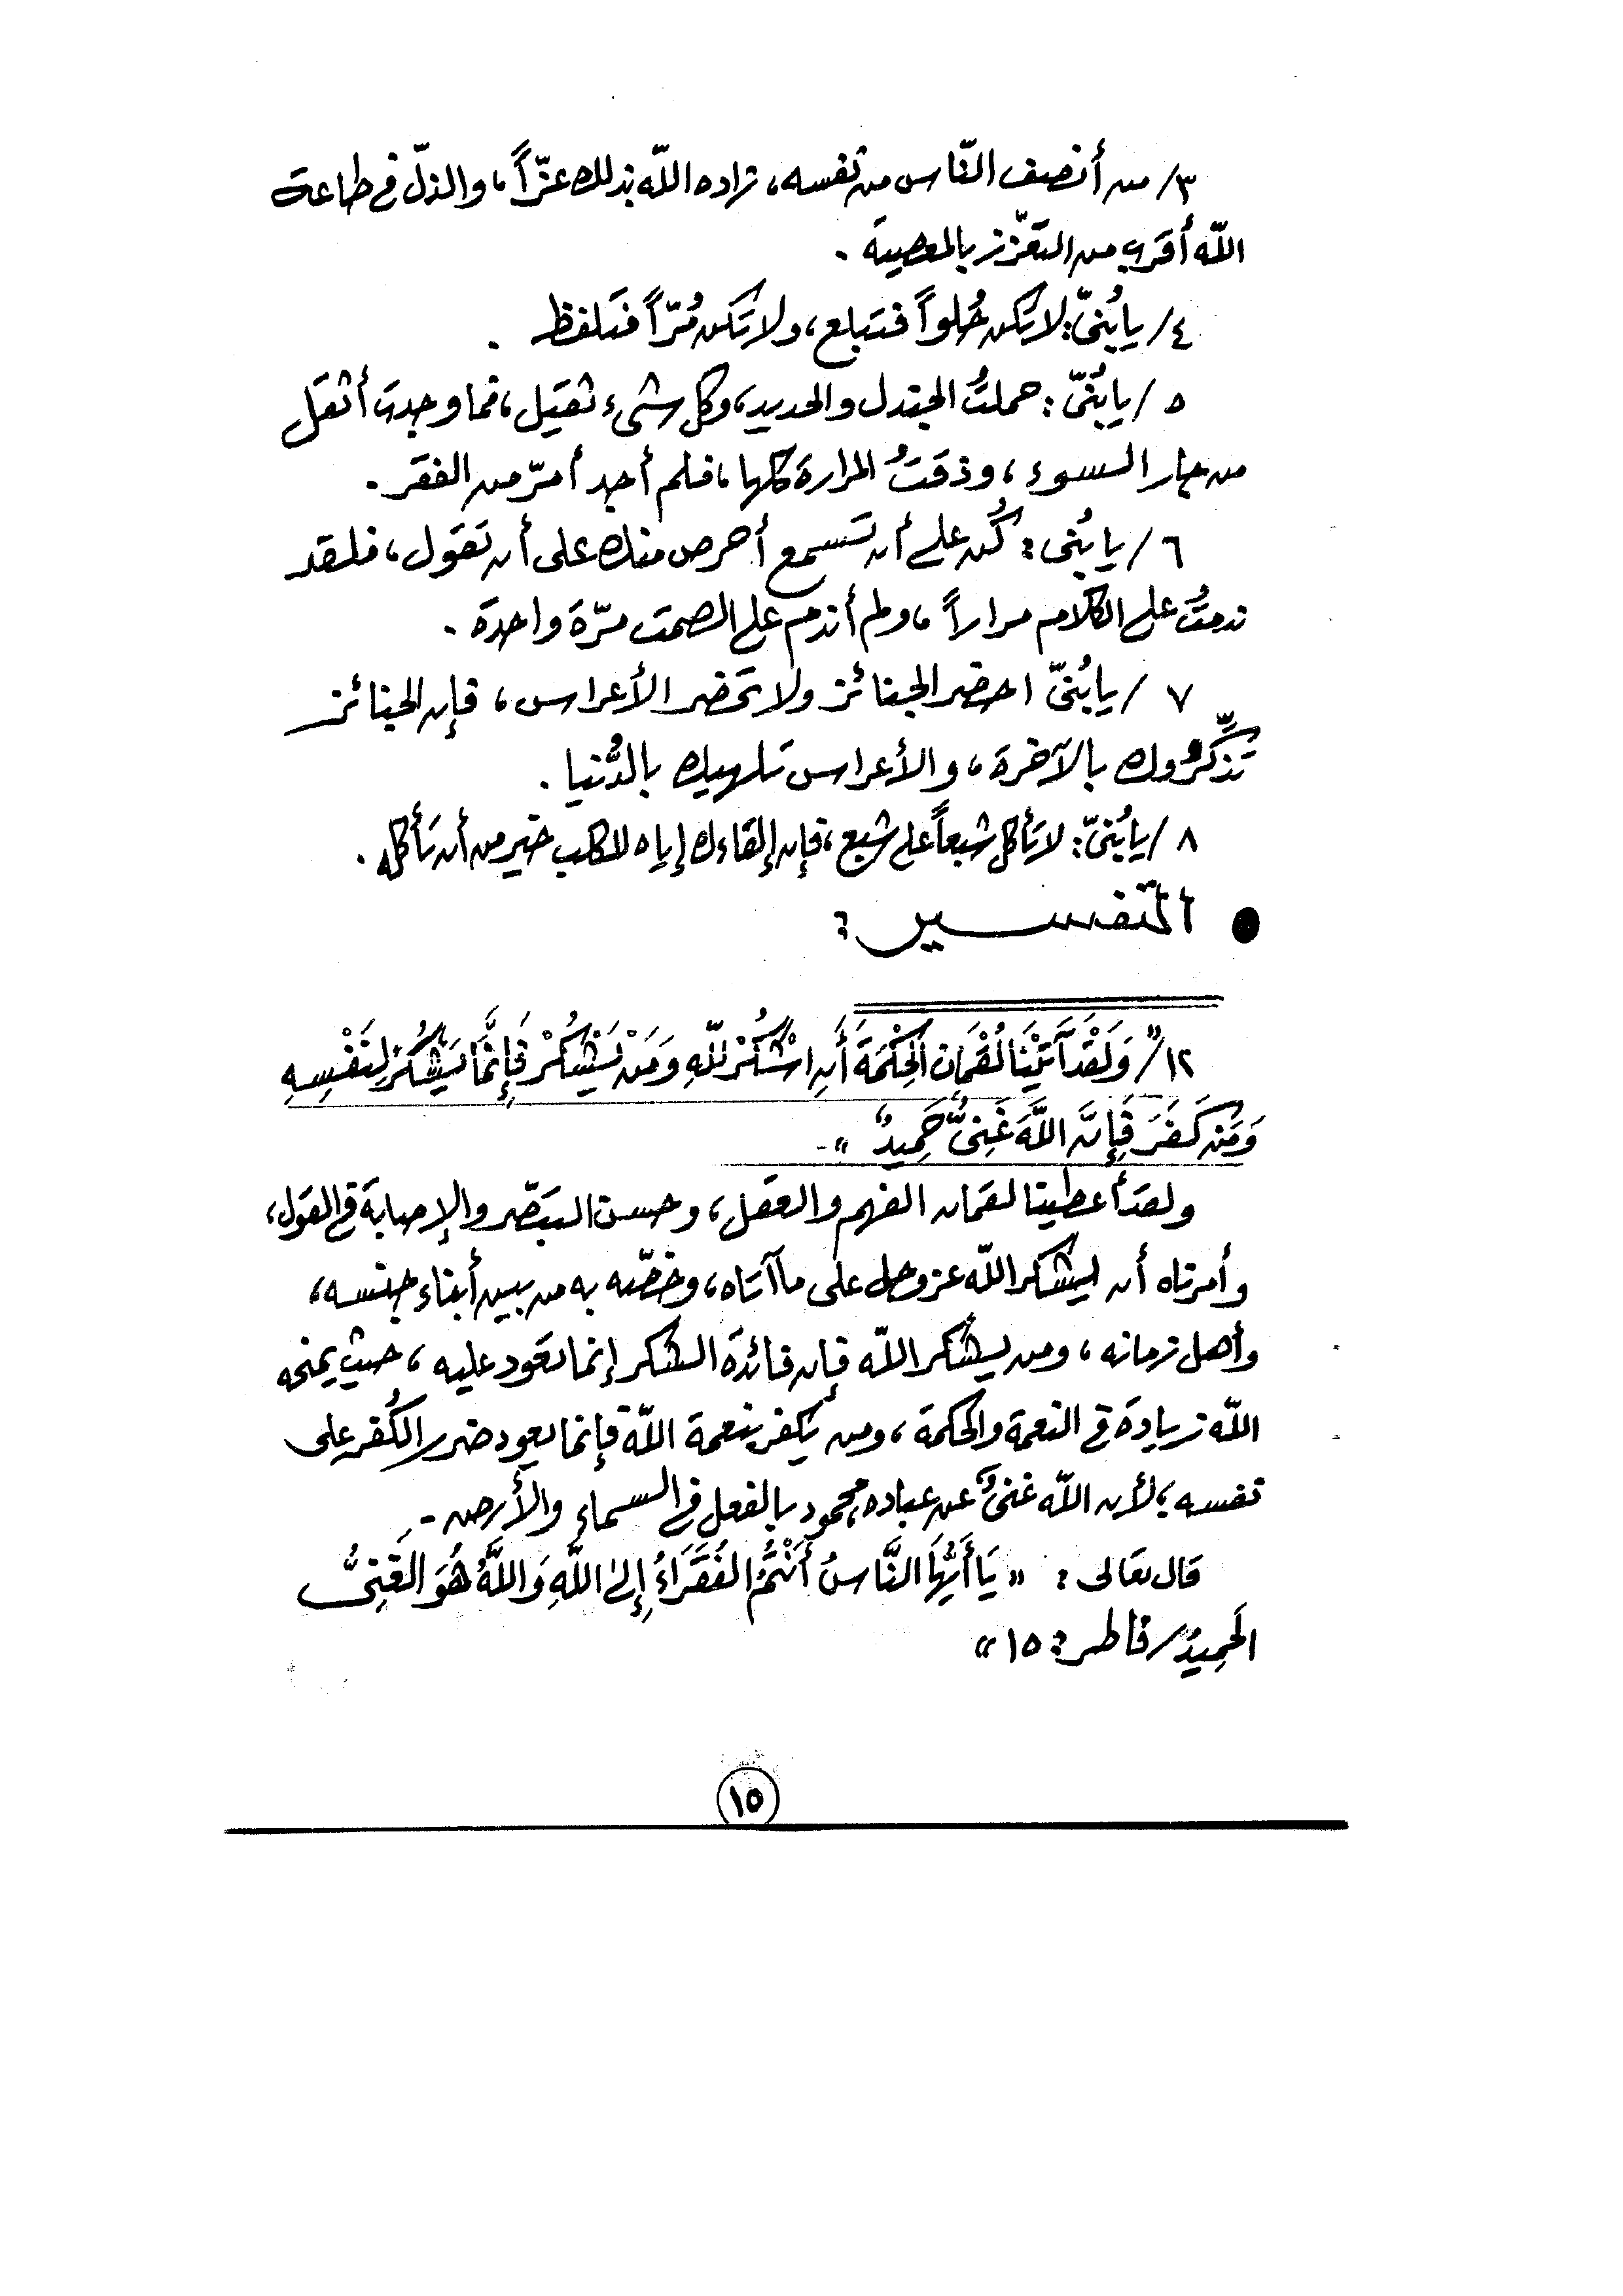 ٣/ من أنصف النّاس من نفسه، زاده الله بذلك عزّاً، والذلّ في طاعة
الله أقرب من التعزّز بالمعصية .
٤/ يابُنيّ: لا تكن حُلواً فتبلع، ولا تكن مُرّاً فتلفظ .
٥/ يابُنيّ: حملتُ الجندل والحديد، وكل شيء ثقيل، فما وجدت أثقل
من جار السوء، وذقتُ المرارة كلها، فلم أجد أمرّ من الفقر.
٦/ يابُني: كُن على أن تسمع أحرص منك على أن تقول، فلقد
ندمتُ على الكلام مراراً، ولم أندم على الصمت مرّة واحدة.
٧/ يابُنيّ احضر الجنائز ولا تحضر الأعراس، فإن الجنائز
تذكِّرُوك بالآخرة، والأعراس تلهيك بالدُّنيا.
٨/ يابُنيّ: لا تأكل شبعاً على شبع، فإن إلقاءك إياه للكلب خير من أن تأكله.
● التفسير:
١٢/ "وَلَقَدْ آتَيْنَا لُقْمَانَ الحِكْمَةَ أَنِ اشْكُرْ لِلّهِ وَمَنْ يَشْكُرْ فَإِنَّمَا يَشْكُرُ لِنَفْسِهِ
وَمَن كَفَرَ فَإِنَّ اللَّهَ غَنِيٌّ حَمِيدٌ" -
ولقد أعطينا لقمان الفهم والعقل، وحسن التبصّر والإصابة في القول،
وأمرناه أن يشكر الله عز وجل على ما آتاه، وخصّه به من بين أبناء جنسه،
وأهل زمانه، ومن يشكر الله فإن فائدة الشكر إنما تعود عليه، حيث يمنحه
الله زيادة في النعمة والحكمة، ومن يكفر بنعمة الله فإنما يعود ضرر الكُفر على
نفسه؛ لأن الله غنيٌّ عن عباده، محمود بالفعل في السماء والأرض -
قال تعالى: "يَا أَيُّهَا النَّاسُ أَنْتُمُ الفُقَرَاءُ إِلَى اللَّهِ وَاللَّهُ هُوَ الغَنِيُّ
الحَمِيدُ/ فاطر: ١٥"
١٥